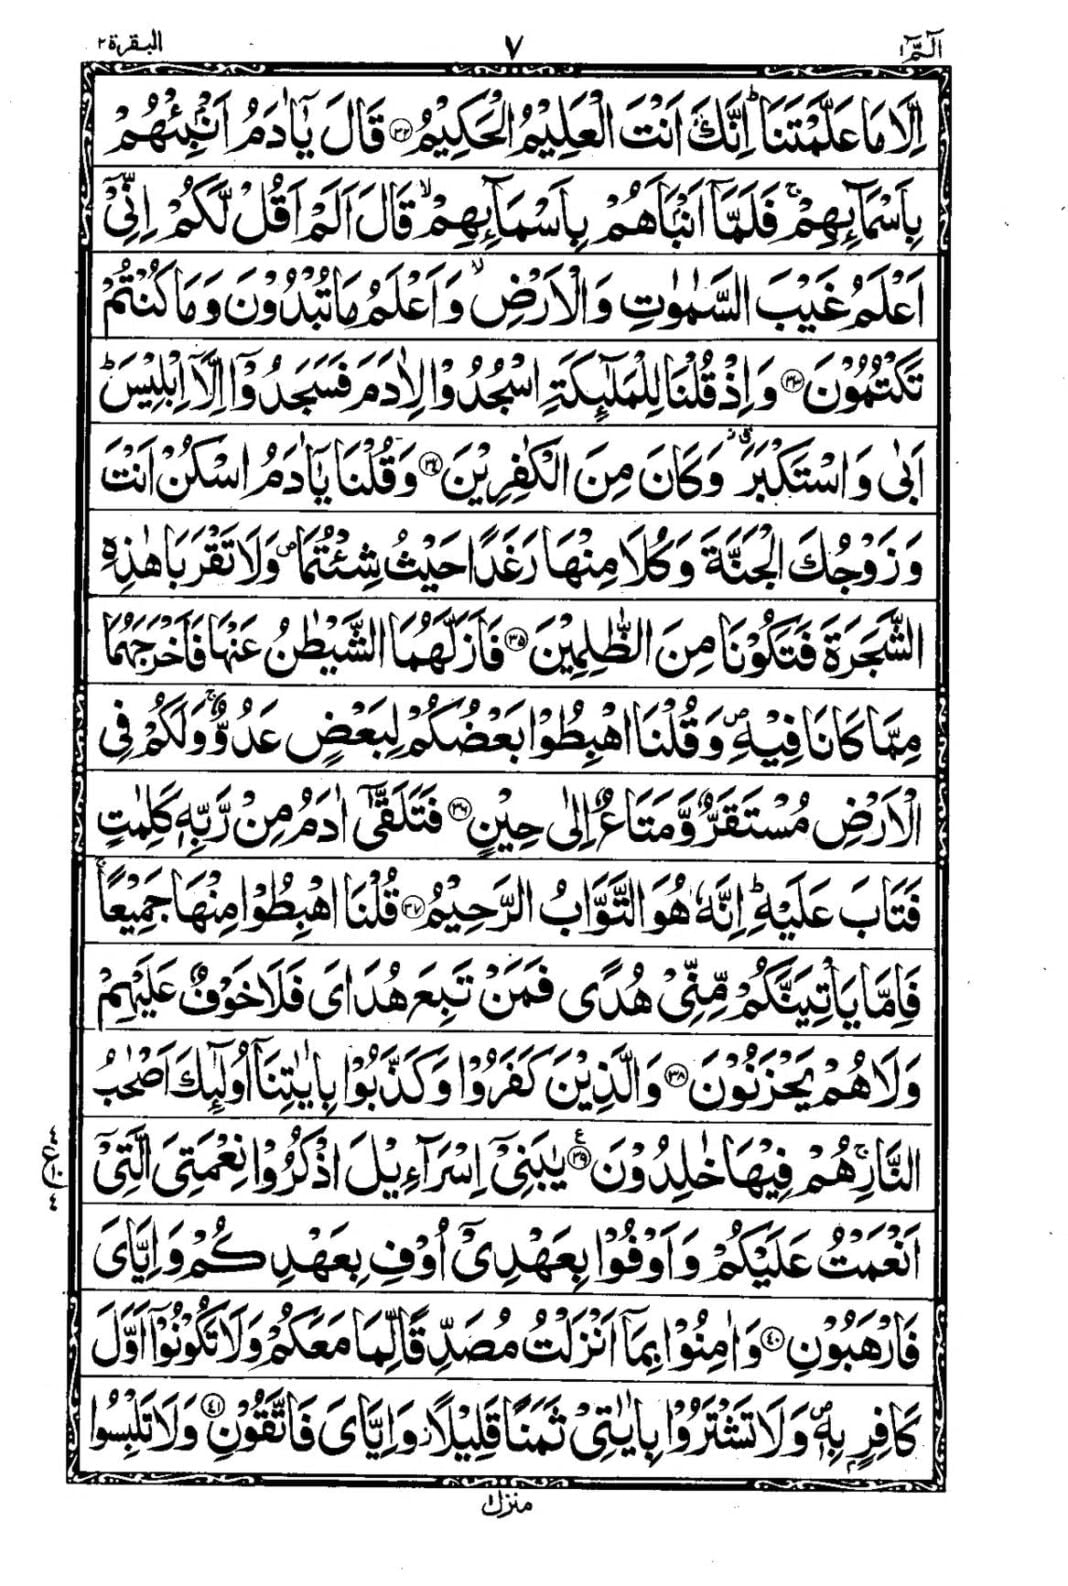 الٓمّٓ ١ ٧ البقرة ٢
اِلَّا مَا عَلَّمْتَنَا ؕ اِنَّكَ اَنْتَ الْعَلِیْمُ الْحَكِیْمُ ﴿۳۲﴾ قَالَ یٰۤاٰدَمُ اَنْۢبِئْهُمْ
بِاَسْمَآئِهِمْ ۚ فَلَمَّاۤ اَنْۢبَاَهُمْ بِاَسْمَآئِهِمْ ۙ قَالَ اَلَمْ اَقُلْ لَّكُمْ اِنِّیْۤ
اَعْلَمُ غَیْبَ السَّمٰوٰتِ وَالْاَرْضِ ۙ وَاَعْلَمُ مَا تُبْدُوْنَ وَمَا كُنْتُمْ
تَكْتُمُوْنَ ﴿۳۳﴾ وَاِذْ قُلْنَا لِلْمَلٰٓئِكَةِ اسْجُدُوْا لِاٰدَمَ فَسَجَدُوْۤا اِلَّاۤ اِبْلِیْسَ ؕ
اَبٰی وَاسْتَكْبَرَ ۗ وَكَانَ مِنَ الْكٰفِرِیْنَ ﴿۳۴﴾ وَقُلْنَا یٰۤاٰدَمُ اسْكُنْ اَنْتَ
وَزَوْجُكَ الْجَنَّةَ وَكُلَا مِنْهَا رَغَدًا حَیْثُ شِئْتُمَا ۪ وَلَا تَقْرَبَا هٰذِهِ
الشَّجَرَةَ فَتَكُوْنَا مِنَ الظّٰلِمِیْنَ ﴿۳۵﴾ فَاَزَلَّهُمَا الشَّیْطٰنُ عَنْهَا فَاَخْرَجَهُمَا
مِمَّا كَانَا فِیْهِ ۪ وَقُلْنَا اهْبِطُوْا بَعْضُكُمْ لِبَعْضٍ عَدُوٌّ ۚ وَلَكُمْ فِی
الْاَرْضِ مُسْتَقَرٌّ وَّمَتَاعٌ اِلٰی حِیْنٍ ﴿۳۶﴾ فَتَلَقّٰۤی اٰدَمُ مِنْ رَّبِّهٖ كَلِمٰتٍ
فَتَابَ عَلَیْهِ ؕ اِنَّهٗ هُوَ التَّوَّابُ الرَّحِیْمُ ﴿۳۷﴾ قُلْنَا اهْبِطُوْا مِنْهَا جَمِیْعًا ۚ
فَاِمَّا یَاْتِیَنَّكُمْ مِّنِّیْ هُدًی فَمَنْ تَبِعَ هُدَایَ فَلَا خَوْفٌ عَلَیْهِمْ
وَلَا هُمْ یَحْزَنُوْنَ ﴿۳۸﴾ وَالَّذِیْنَ كَفَرُوْا وَكَذَّبُوْا بِاٰیٰتِنَاۤ اُولٰٓئِكَ اَصْحٰبُ
النَّارِ ۚ هُمْ فِیْهَا خٰلِدُوْنَ ﴿۳۹﴾ یٰبَنِیْۤ اِسْرَآءِیْلَ اذْكُرُوْا نِعْمَتِیَ الَّتِیْۤ
اَنْعَمْتُ عَلَیْكُمْ وَاَوْفُوْا بِعَهْدِیْۤ اُوْفِ بِعَهْدِكُمْ وَاِیَّایَ
فَارْهَبُوْنِ ﴿۴۰﴾ وَاٰمِنُوْا بِمَاۤ اَنْزَلْتُ مُصَدِّقًا لِّمَا مَعَكُمْ وَلَا تَكُوْنُوْۤا اَوَّلَ
كَافِرٍۭ بِهٖ ۪ وَلَا تَشْتَرُوْا بِاٰیٰتِیْ ثَمَنًا قَلِیْلًا ؗ وَاِیَّایَ فَاتَّقُوْنِ ﴿۴۱﴾ وَلَا تَلْبِسُوا
منزل